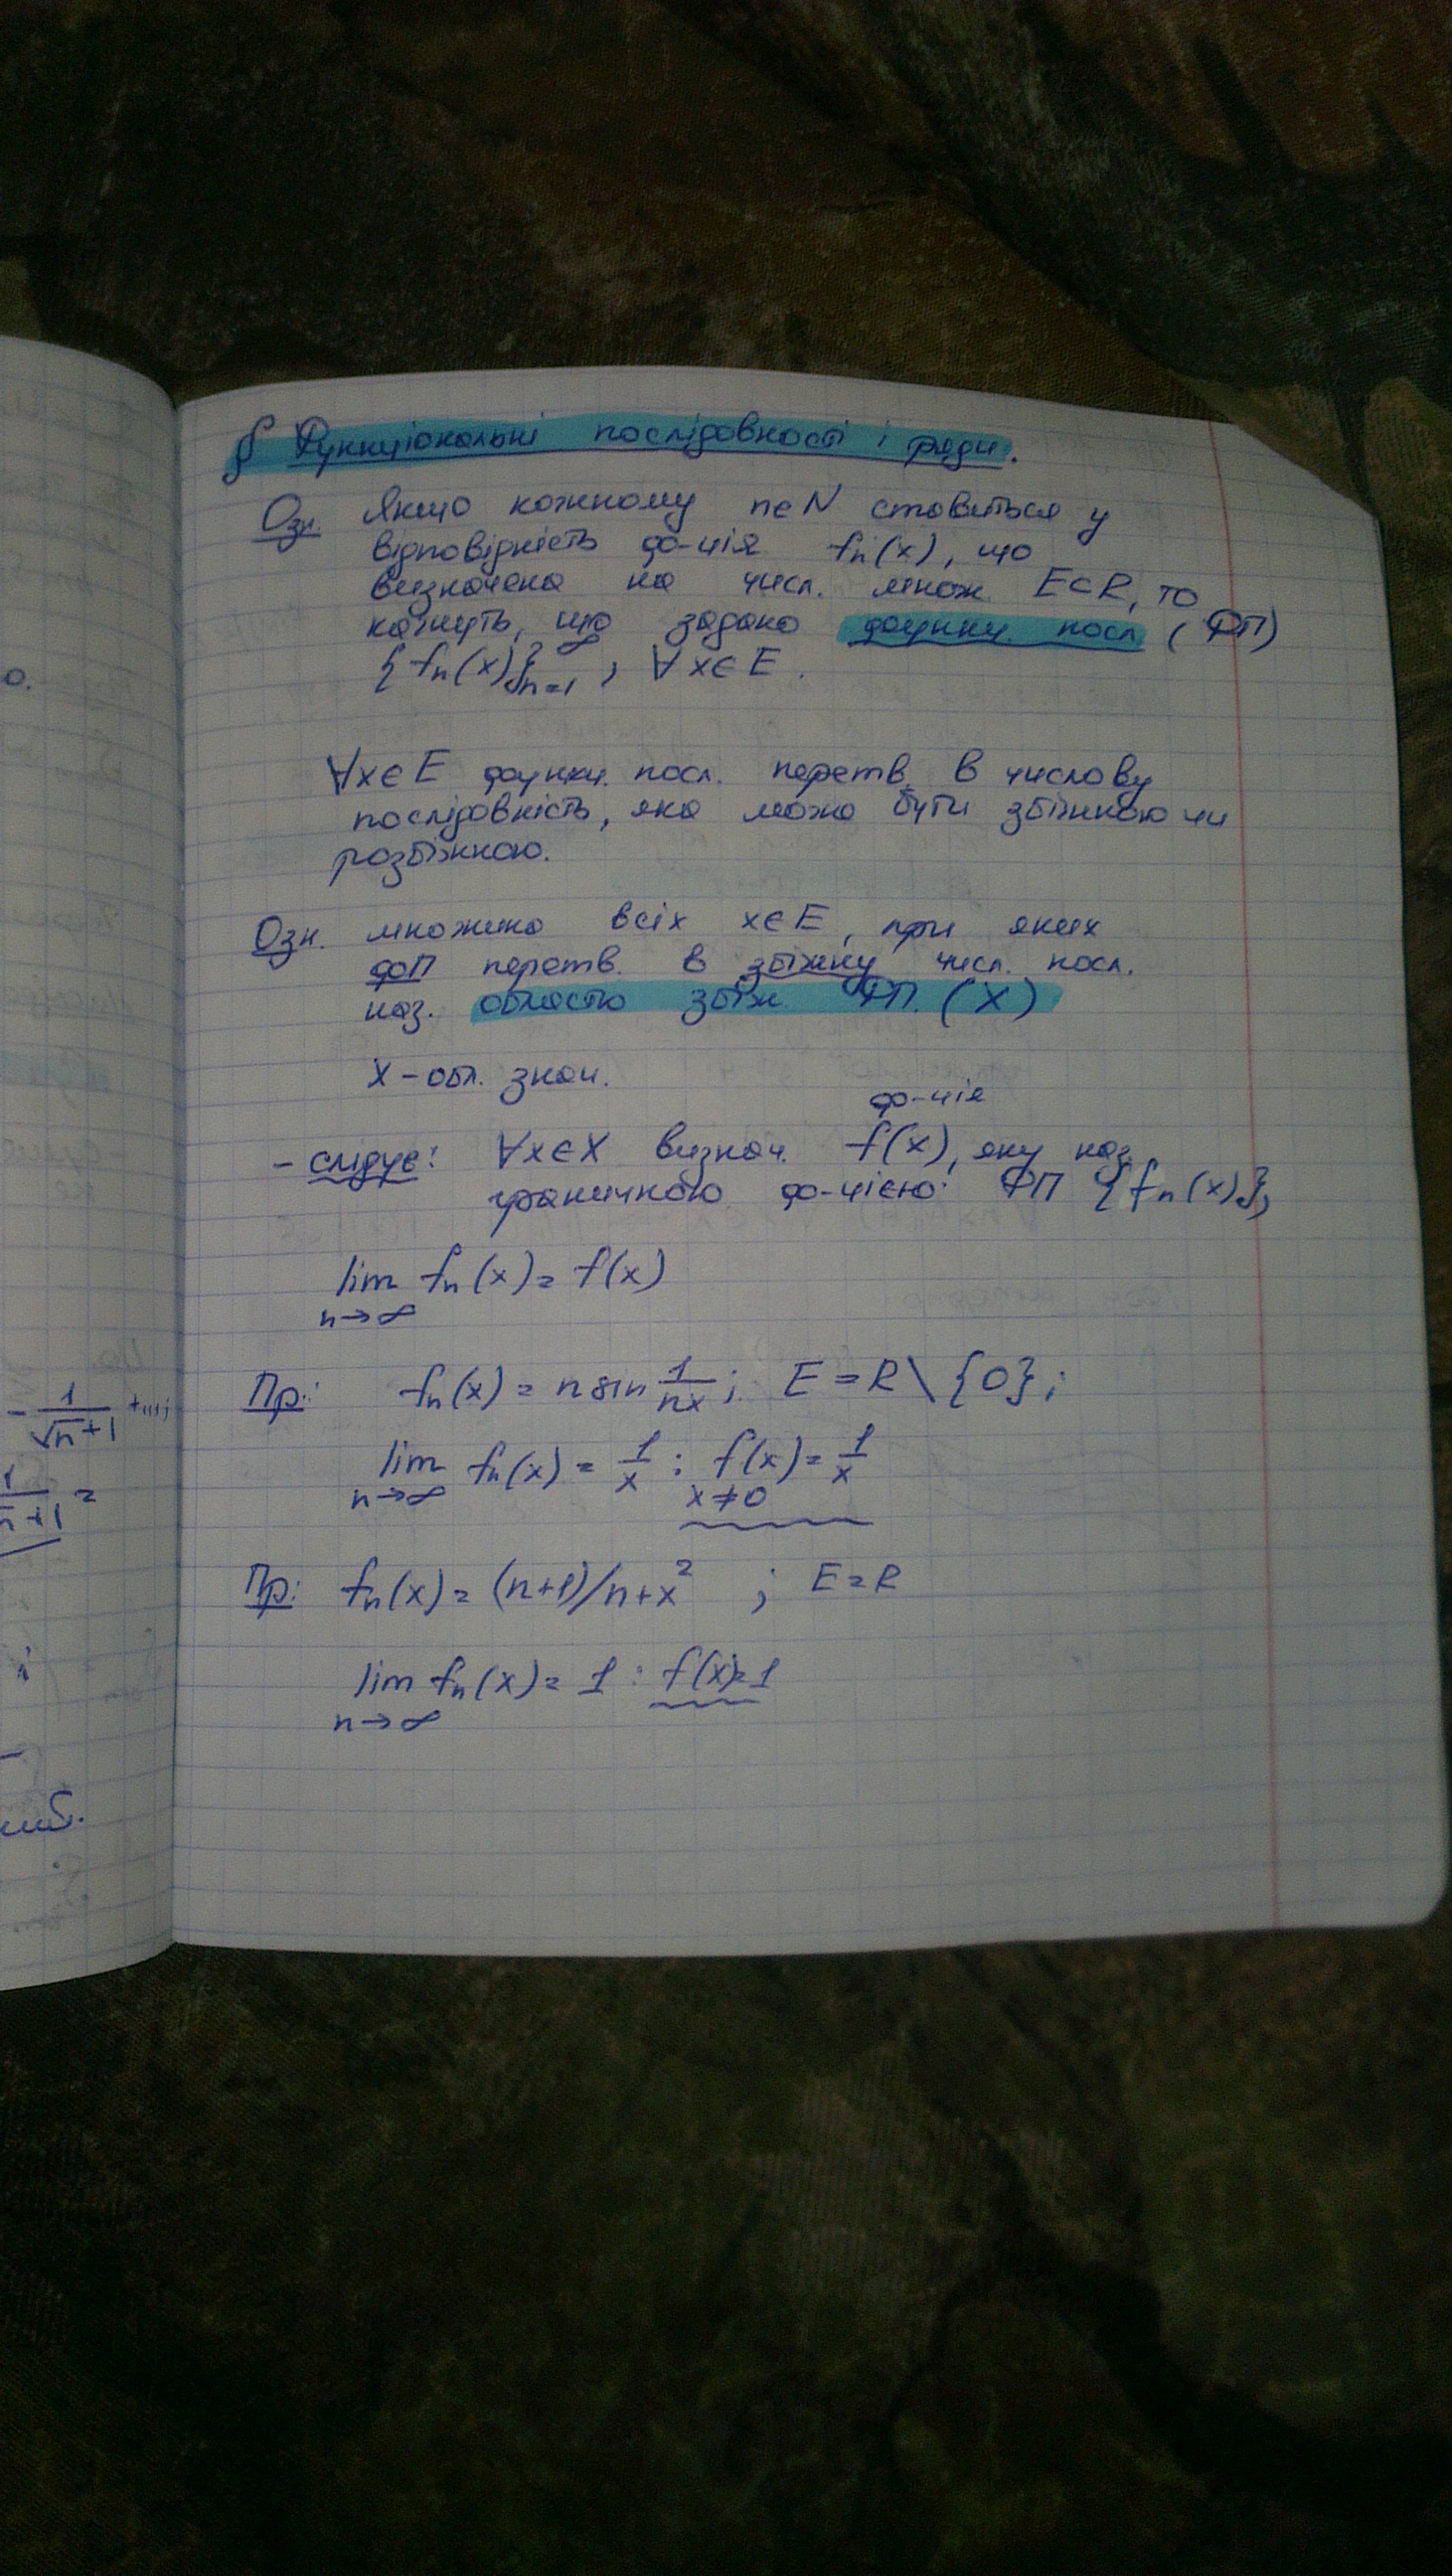 § Функціональні послідовності і ряди.
Озн. Якщо кожному n∈N ставиться у
відповідність ф-ція fn(x), що
визначена на числ. множ. E⊂R, то
кажуть, що задано функц. посл. (ФП)
{fn(x)}∞n=1, ∀x∈E.
∀x∈E функц. посл. перетв. в числову
послідовність, яка може бути збіжною чи
розбіжною.
Озн. множина всіх x∈E, при яких
ФП перетв. в збіжну числ. посл.
наз. областю збіж. ФП. (X)
X – обл. знач.
ф-ція
– слідує: ∀x∈X визнач. f(x), яку наз.
граничною ф-цією ФП {fn(x)},
lim fn(x) = f(x)
n→∞
Пр: fn(x) = n sin 1/nx; E = R\{0};
lim fn(x) = 1/x : f(x) = 1/x
n→∞ x≠0
Пр: fn(x) = (n+1)/n+x² ; E=R
lim fn(x) = 1 : f(x)=1
n→∞
о.
- 1/√n+1 +...;
1/n+1 =